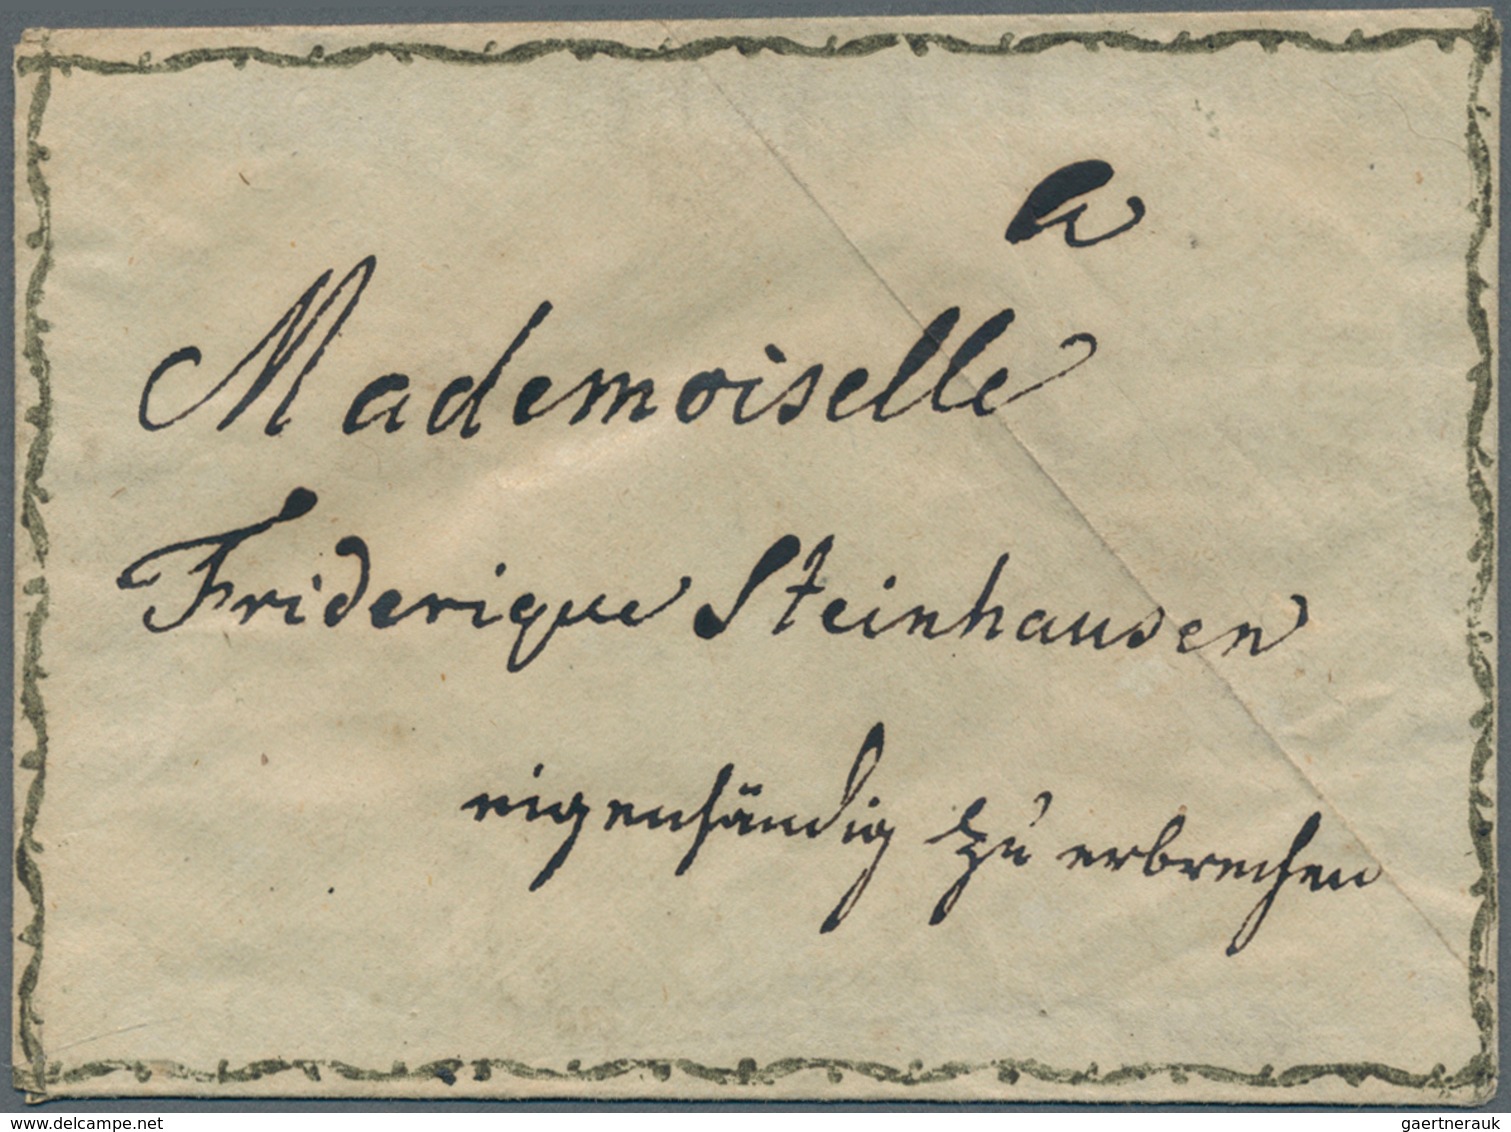 a
Mademoiselle
Friderique Steinhausen
eigenhändig zu erbrechen
www.delcampe.net
gaertnerauk